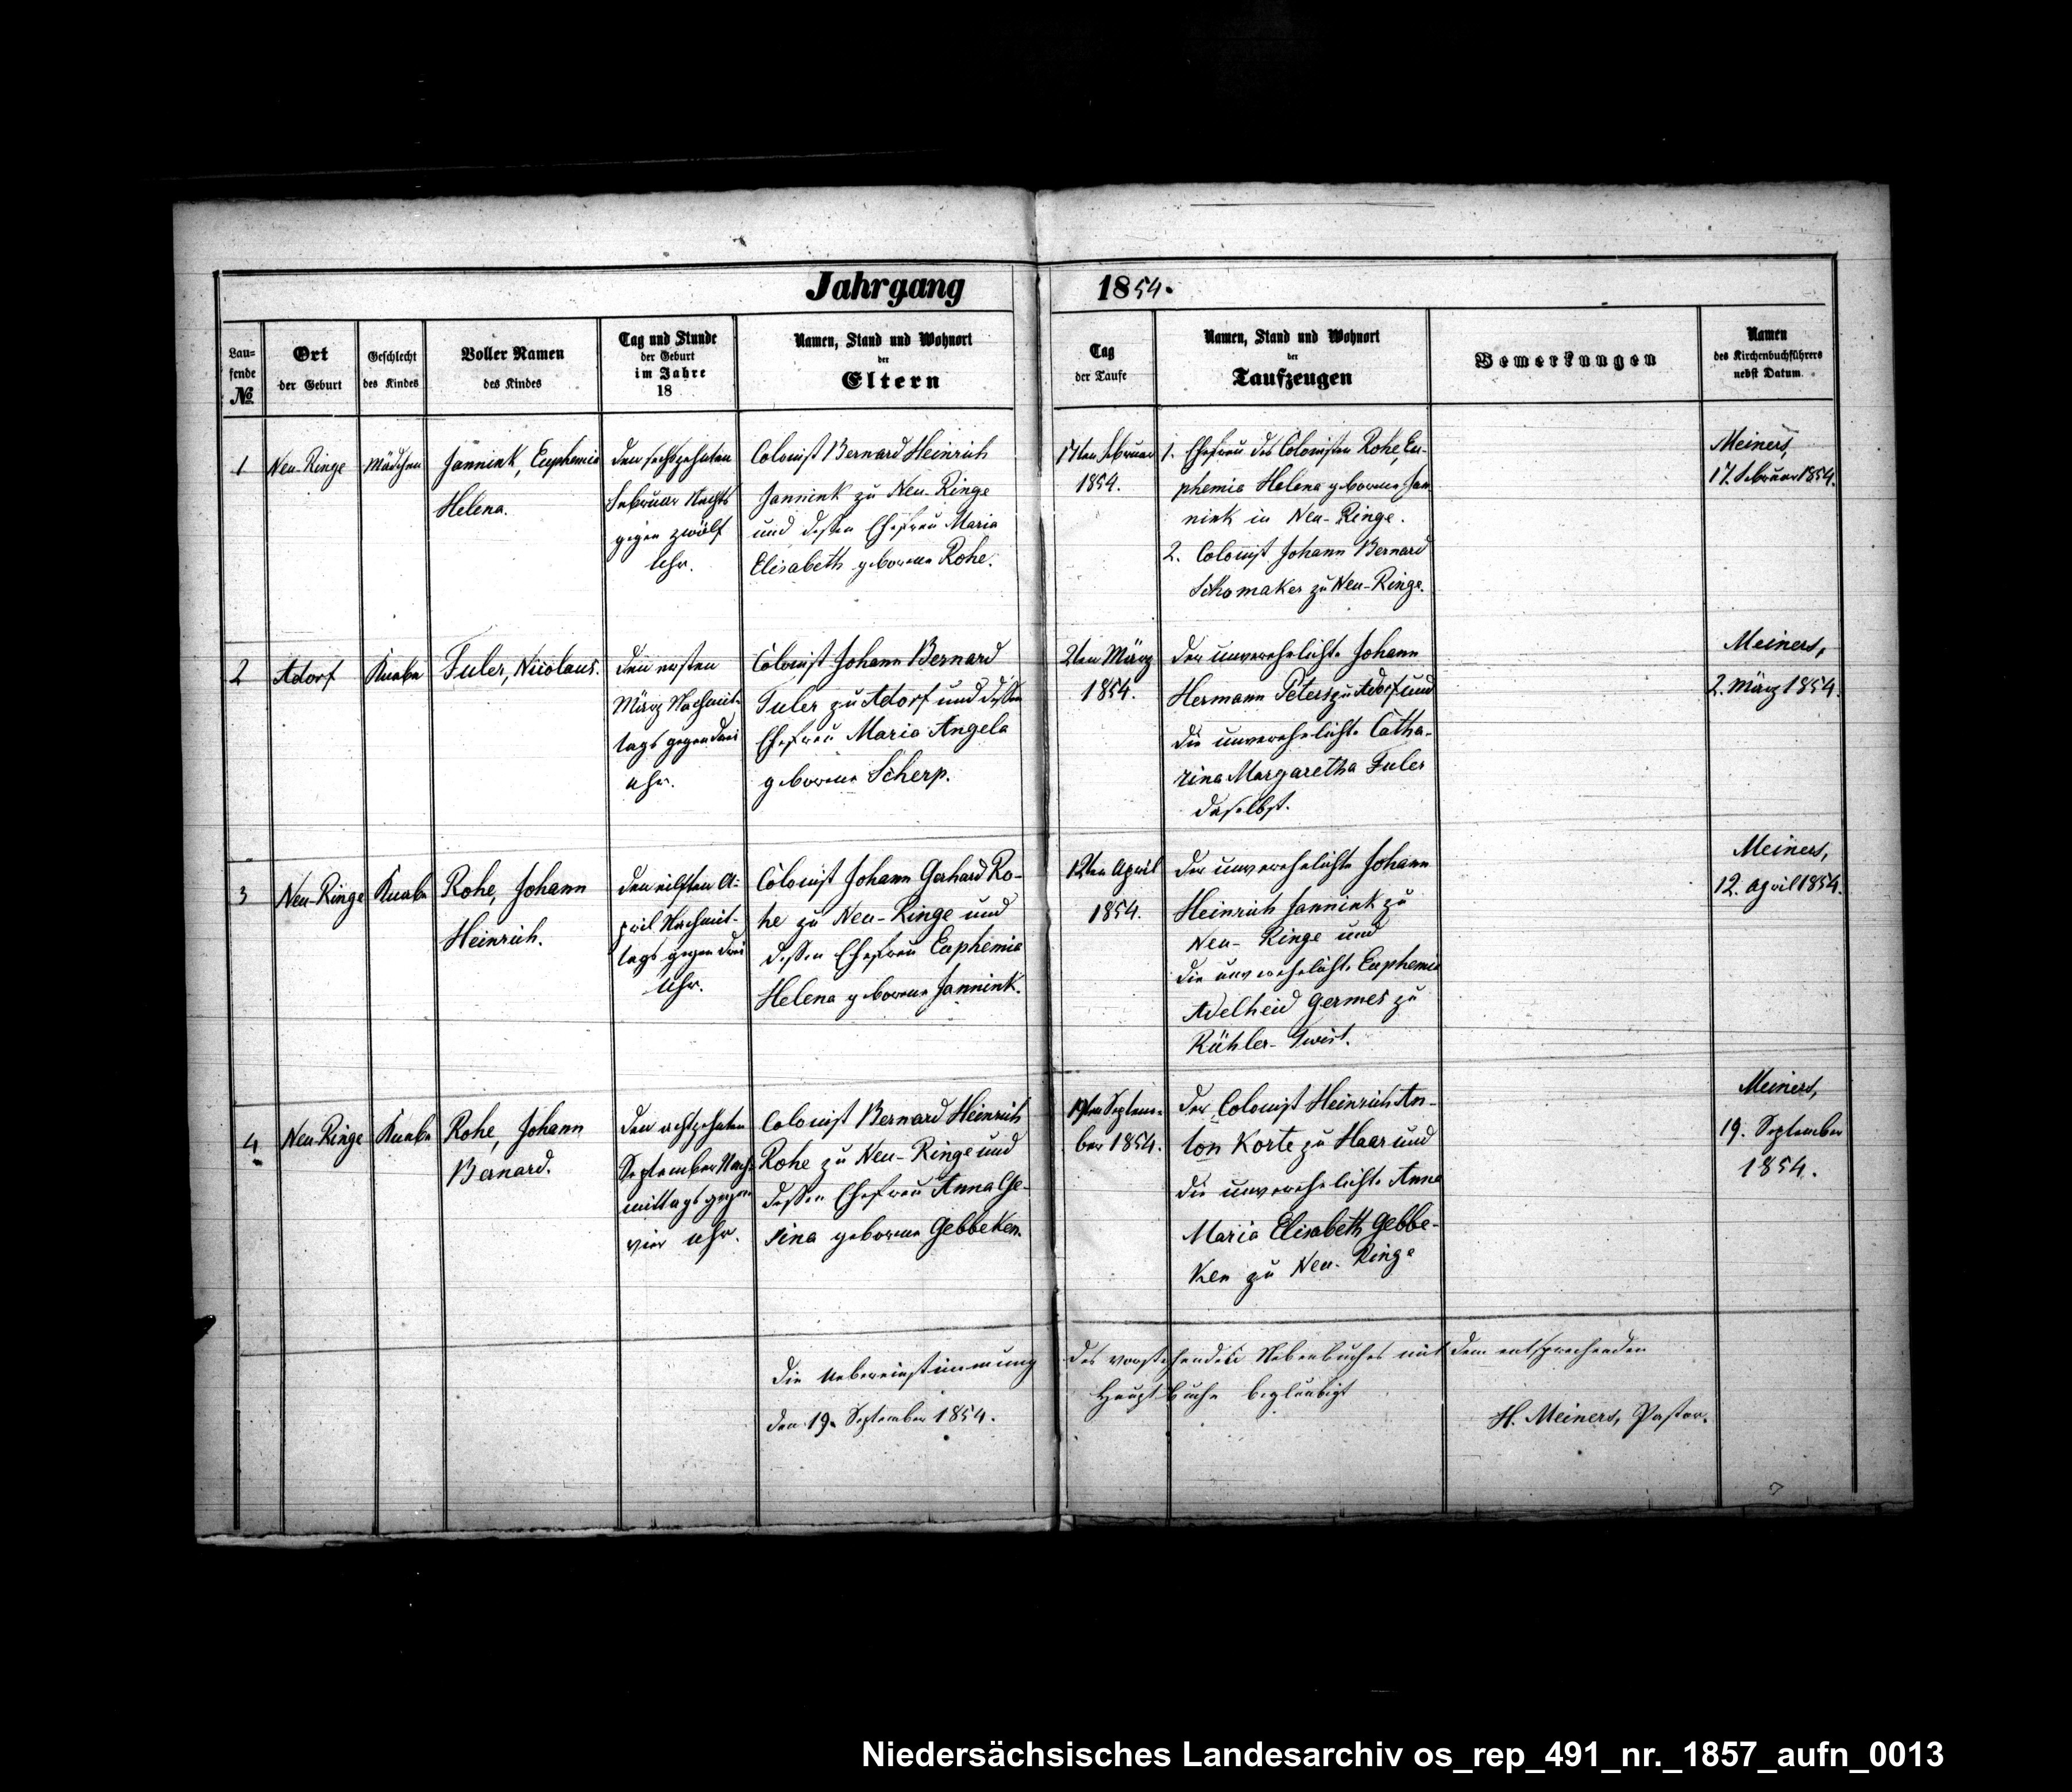 Jahrgang 1854.
Lau-
fende
№
Ort
der Geburt
Geschlecht
des Kindes
Voller Namen
des Kindes
Tag und Stunde
der Geburt
im Jahre
18
Namen, Stand und Wohnort
der
Eltern
Tag
der Taufe
Namen, Stand und Wohnort
der
Taufzeugen
Bemerkungen
Namen
des Kirchenbuchführers
nebst Datum.
1
Neu-Ringe
Mädchen
Jannink, Euphemia
Helena.
den sechszehnten
Februar Nachts
gegen zwölf
Uhr.
Colonist Bernard Heinrich
Jannink zu Neu-Ringe
und dessen Ehefrau Maria
Elisabeth geborene Rohe.
17ten Februar
1854.
1. Ehefrau des Colonisten Rohe, Eu-
phemia Helena geborene Jan-
nink in Neu-Ringe.
2. Colonist Johann Bernard
Schomaker zu Neu-Ringe.
Meiners,
17. Februar 1854.
2
Adorf
Knabe
Fuler, Nicolaus.
den ersten
März Nachmit-
tags gegen drei
Uhr.
Colonist Johann Bernard
Fuler zu Adorf und dessen
Ehefrau Maria Angela
geborene Scherp.
2ten März
1854.
der unverehelichte Johann
Hermann Peters zu Adorf und
die unverehelichte Catha-
rina Margaretha Fuler
daselbst.
Meiners,
2. März 1854.
3
Neu-Ringe
Knabe
Rohe, Johann
Heinrich.
den eilften A-
pril Nachmit-
tags gegen drei
Uhr.
Colonist Johann Gerhard Ro-
he zu Neu-Ringe und
dessen Ehefrau Euphemia
Helena geborene Jannink.
12ten April
1854.
der unverehelichte Johann
Heinrich Jannink zu
Neu-Ringe und
die unverehelichte Euphemia
Adelheid Germes zu
Rühler-Twist.
Meiners,
12. April 1854.
4.
Neu-Ringe
Knabe
Rohe, Johann
Bernard.
den achtzehnten
September Nach-
mittags gegen
vier Uhr.
Colonist Bernard Heinrich
Rohe zu Neu-Ringe und
dessen Ehefrau Anna Ge-
sina geborene Gebbeken.
19ten Septem-
ber 1854.
der Colonist Heinrich An-
ton Korte zu Haar und
die unverehelichte Anna
Maria Elisabeth Gebbe-
ken zu Neu-Ringe
Meiners,
19. September
1854.
Die Uebereinstimmung des vorstehenden Nebenbuches mit dem entsprechenden
Hauptbuche beglaubigt
den 19. September 1854.
H. Meiners, Pastor.
Niedersächsisches Landesarchiv os_rep_491_nr._1857_aufn_0013